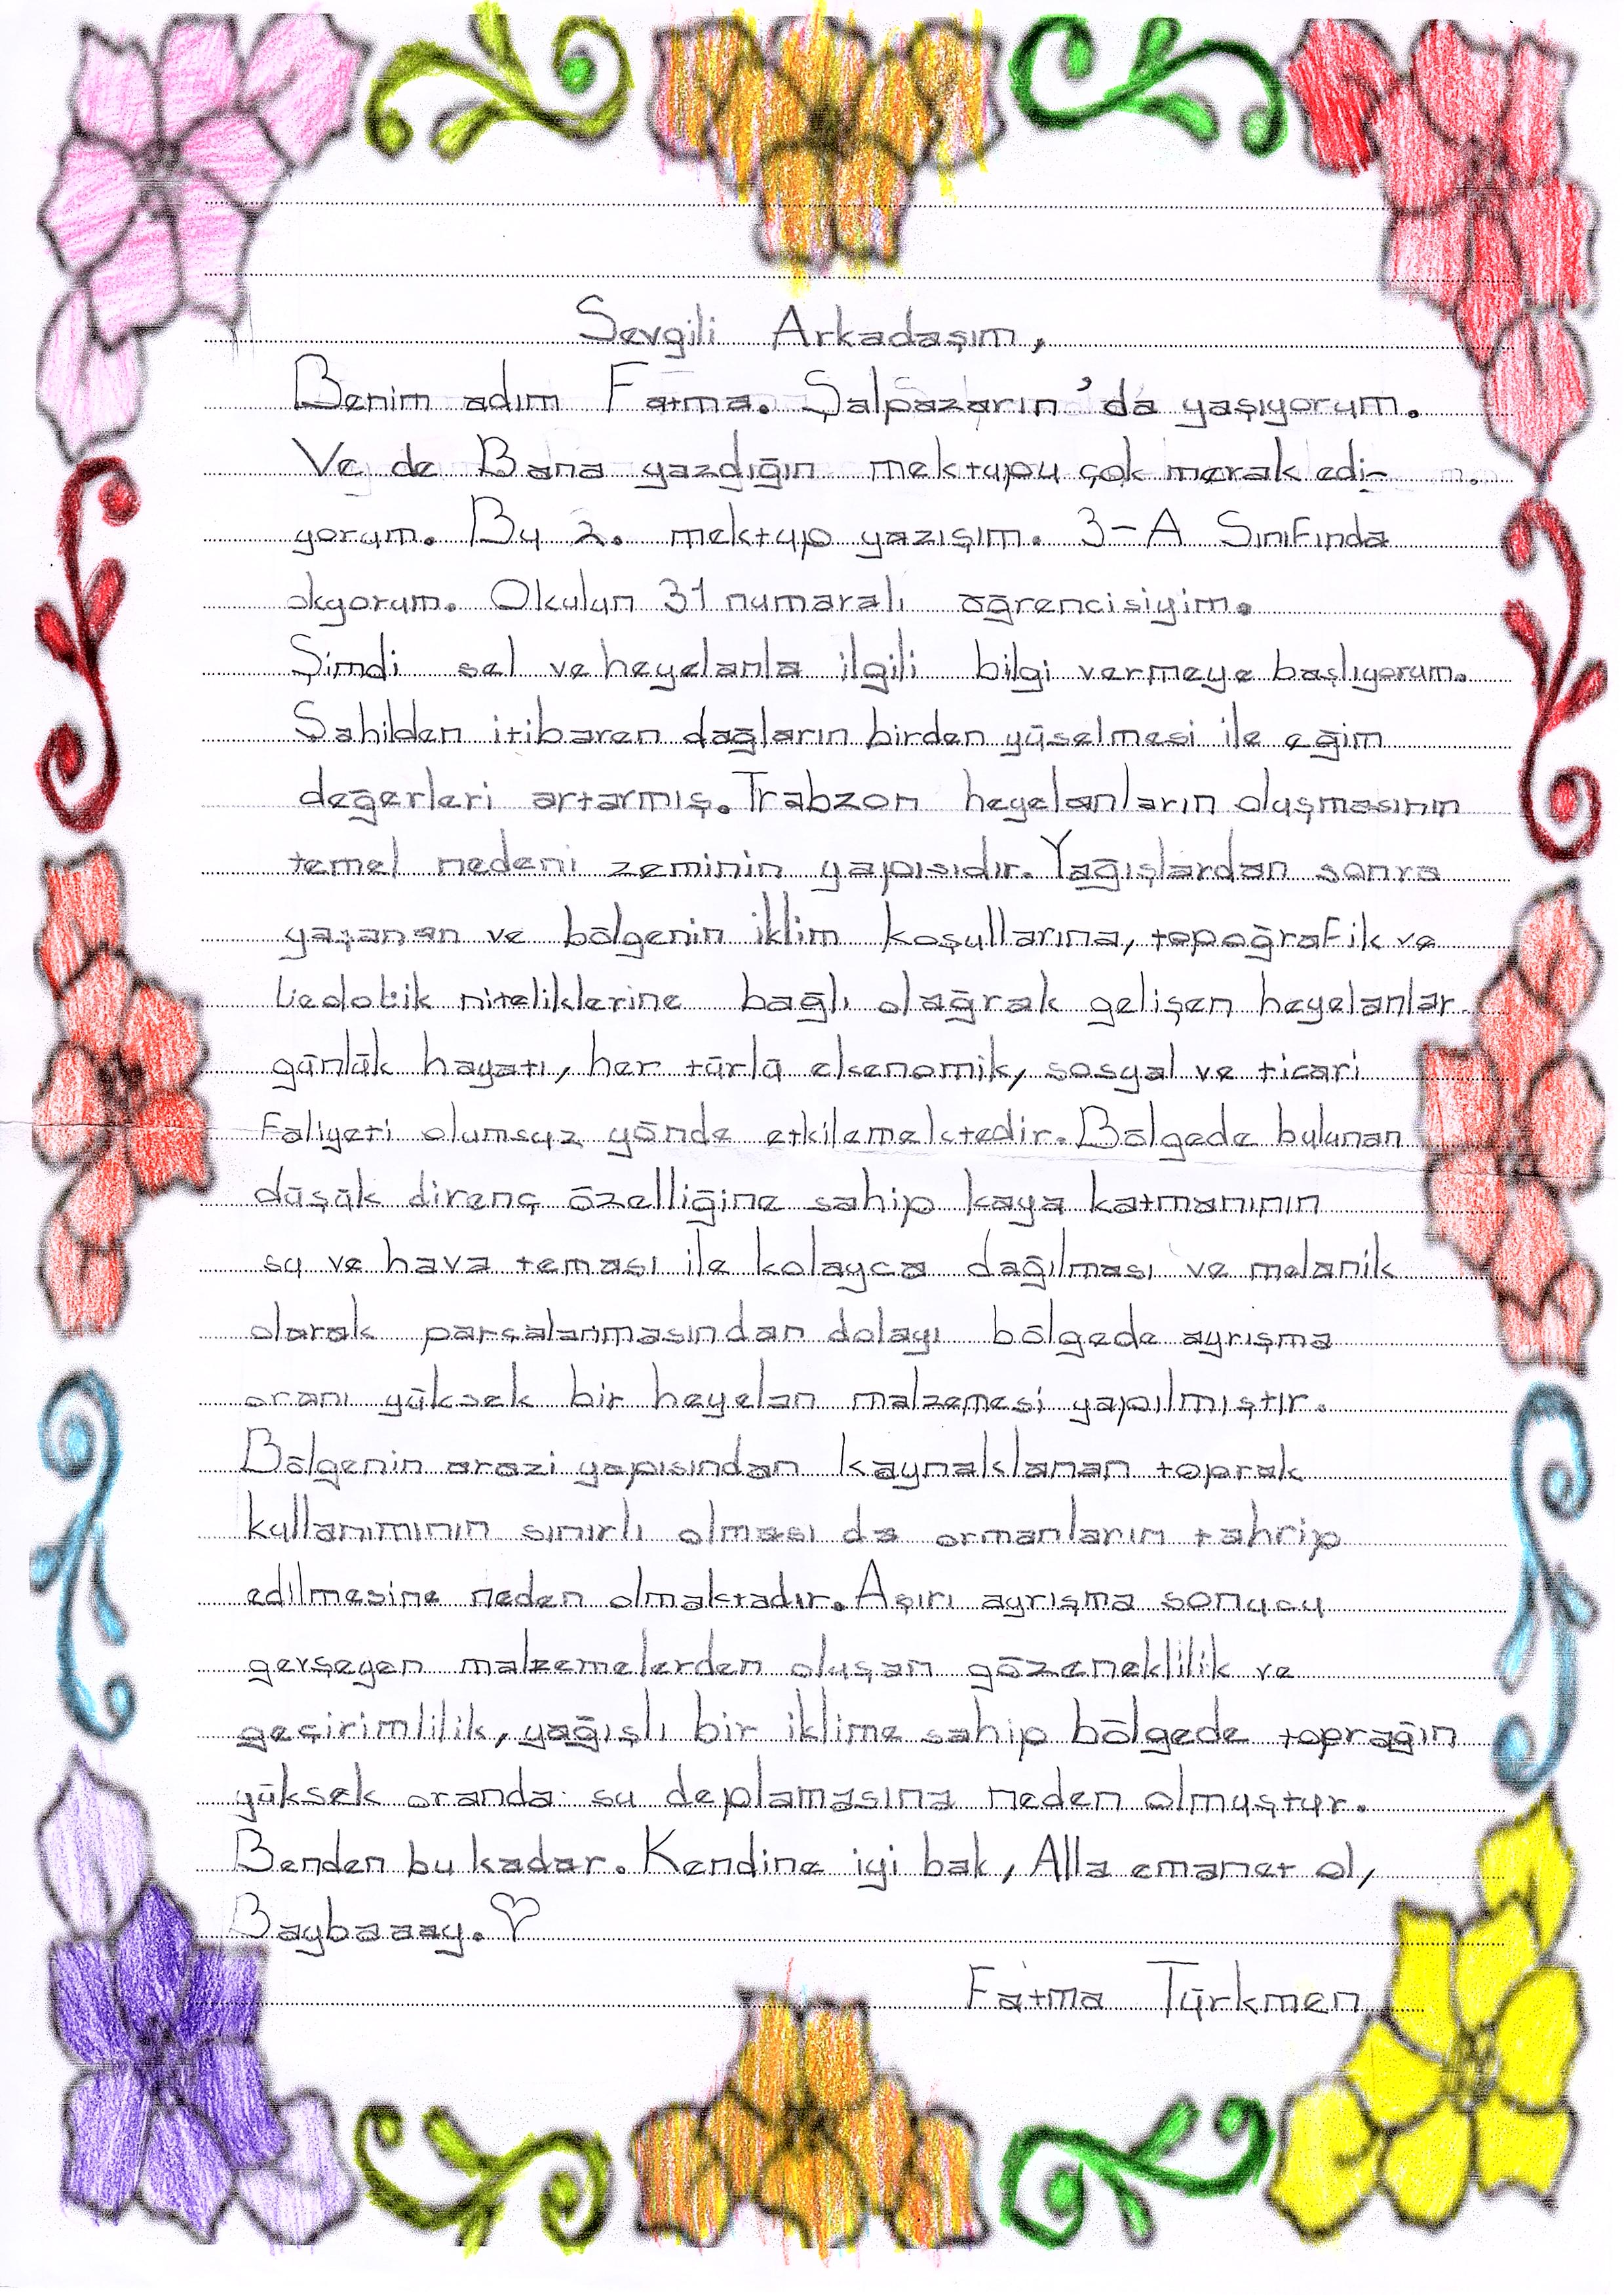 Sevgili Arkadaşım,
Benim adım Fatma. Şalpazarın'da yaşıyorum.
Ve de Bana yazdığın mektupu çok merak edi-
yorum. Bu 2. mektup yazışım. 3-A Sınıfında
okyorum. Okulun 31 numaralı öğrencisiyim.
Şimdi sel ve heyelanla ilgili bilgi vermeye başlıyorum.
Sahilden itibaren dağların birden yüselmesi ile eğim
değerleri artarmış. Trabzon heyelanların oluşmasının
temel nedeni zeminin yapısıdır. Yağışlardan sonra
yaşanan ve bölgenin iklim koşullarına, topoğrafik ve
niteliklerine bağlı olağrak gelişen heyelanlar
günlük hayatı, her türlü ekenomik, sosyal ve ticari
faliyeti olumsuz yönde etkilemektedir. Bölgede bulunan
düşük direnç özelliğine sahip kaya katmanının
su ve hava teması ile kolayca dağılması ve melanik
olarak parçalanmasından dolayı bölgede ayrışma
oranı yüksek bir heyelan malzemesi yapılmıştır.
Bölgenin arazi yapısından kaynaklanan toprak
kullanımının sınırlı olması da ormanların tahrip
edilmesine neden olmaktadır. Aşırı ayrışma sonucu
gevşeyen malzemelerden oluşan gözeneklilik ve
geçirimlilik, yağışlı bir iklime sahip bölgede toprağın
yüksek oranda su deplamasına neden olmuştur.
Benden bu kadar. Kendine iyi bak, Alla emanet ol,
Baybaaay. ♡
Fatma Türkmen